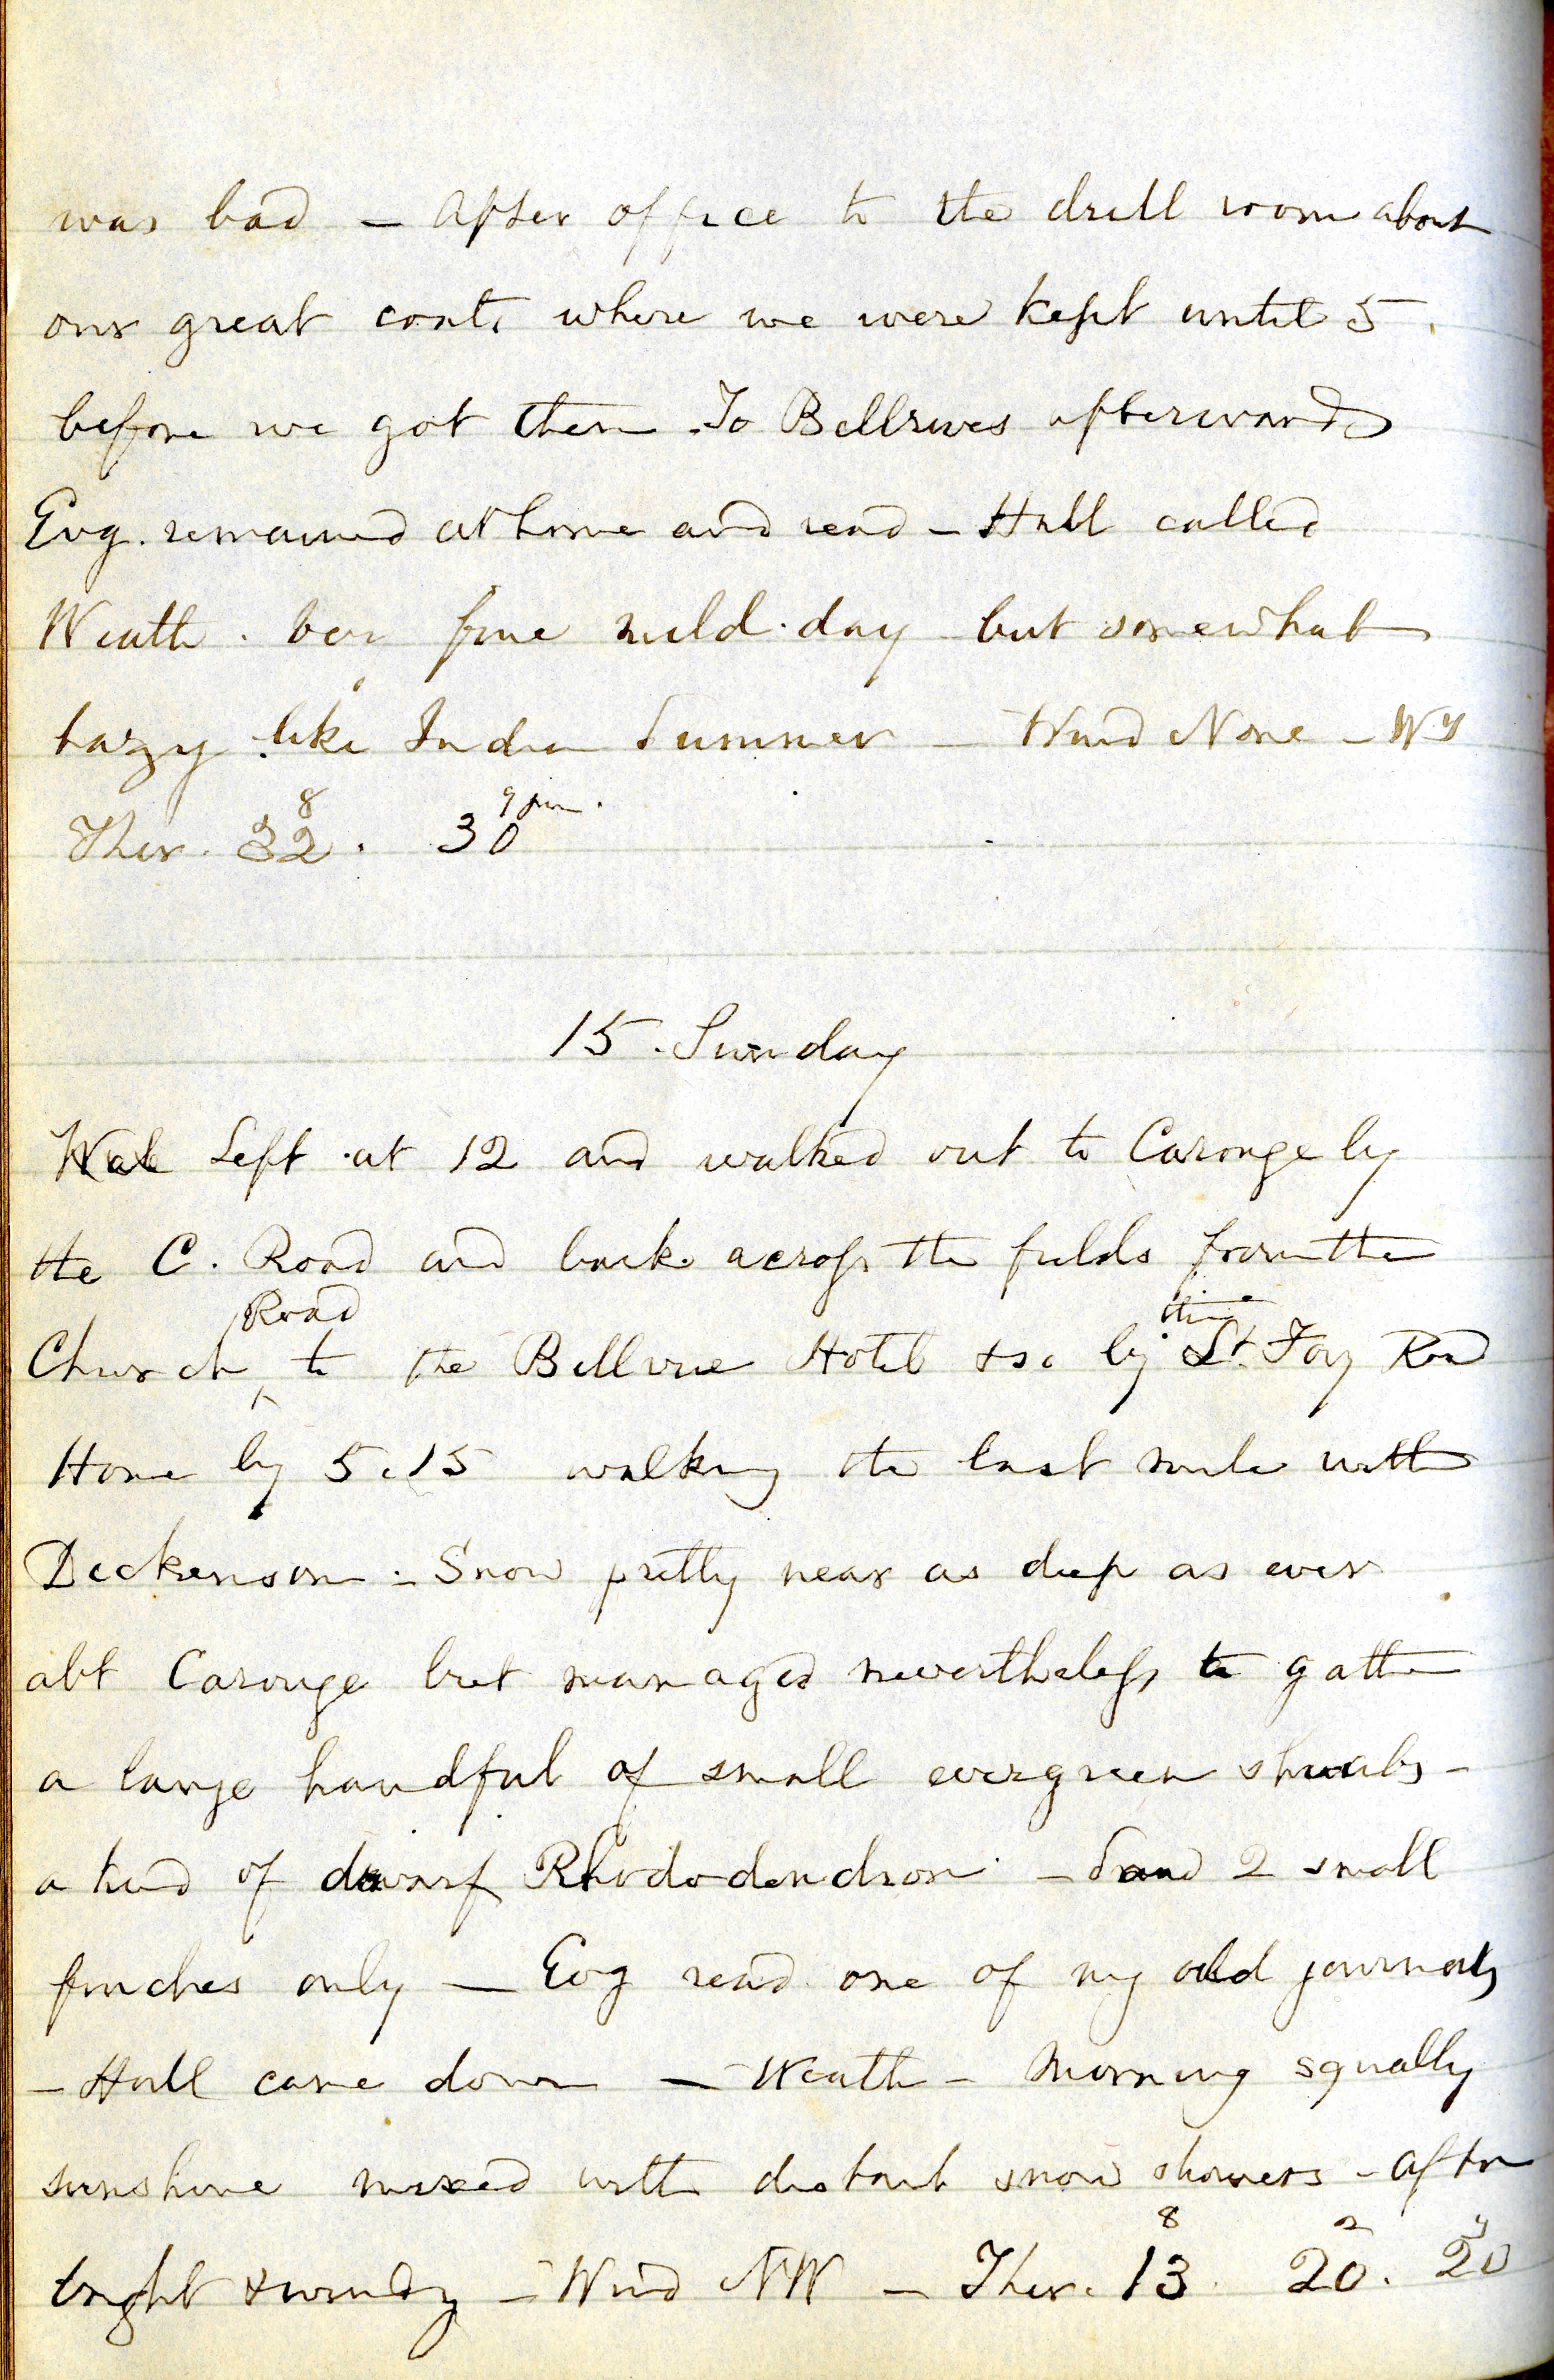 was bad – After office to the drill room about
our great coats where we were kept until 5.
before we got them. To Bellrives afterwards
Evg. remained at home and read – Hall called
Weath. ver fine mild day but somewhat
hazy like Indian Summer – Wind None – Wy
8 9 pm.
Ther. 32. 30
15. Sunday
Left at 12 and walked out to Carouge by
the C. Road and back across the fields from the
Road thence
Church ^ to the Bellvue Hotel & so by St. Foy Road
Home by 5.15 walking the last mile with
Dickenson – Snow pretty near as deep as ever
abt Carouge but managed nevertheless to gather
a large handful of small evergreen shrubs –
a kind of dwarf Rhododendron – Saw 2 small
finches only – Evg read one of my old journals
– Hall came down – Weath – Morning squally
sunshine mixed with distant snow showers – aftn
8 2 9
bright & windy – Wind NW – Ther. 13. 20. 20